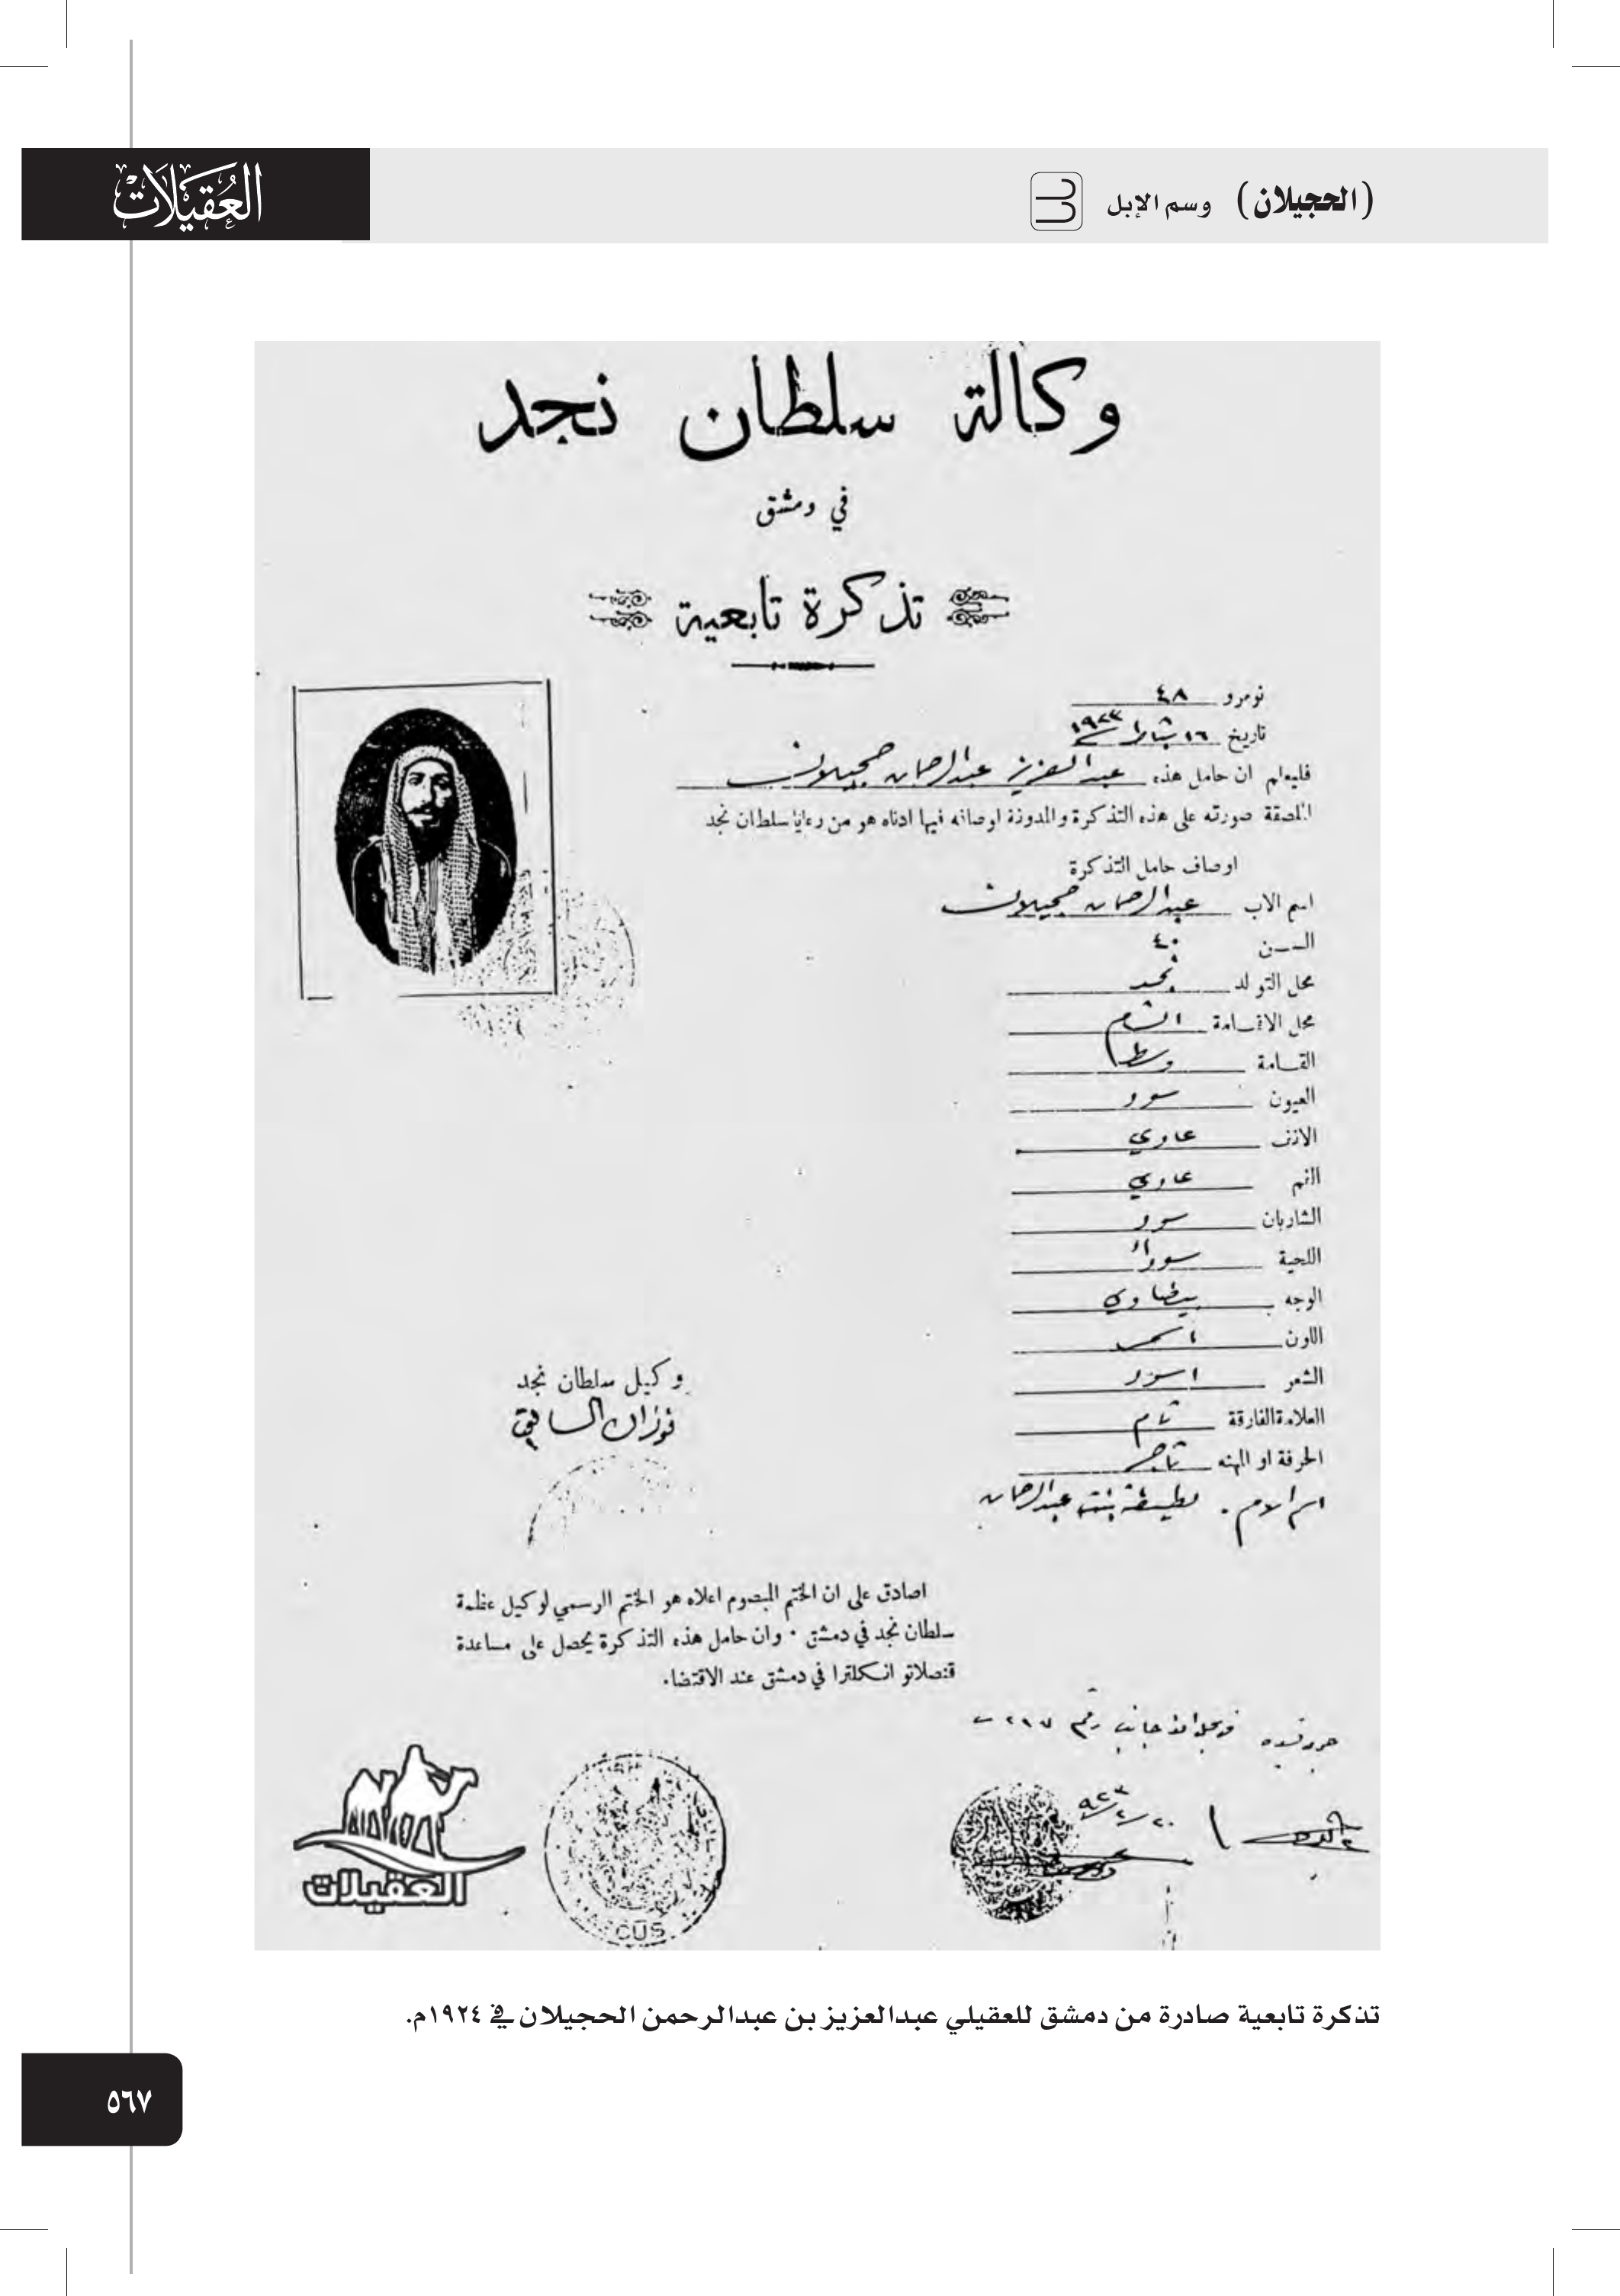 (الحجيلان) وسم الإبل
العُقَيلَات
وكالة سلطان نجد
في دمشق
تذكرة تابعية
نومرو ٤٨
تاريخ ١٦ شباط ١٩٢٣
فليعلم ان حامل هذه عبدالعزيز عبدالرحمان حجيلان
الملصقة صورته على هذه التذكرة والمدونة اوصافه فيها ادناه هو من رعايا سلطان نجد
اوصاف حامل التذكرة
اسم الاب عبدالرحمان حجيلان
الســن ٤٠
محل التولد نجد
محل الاقامة الشام
القامة وسط
العيون سود
الانف عادي
الفم عادي
الشاربان سود
اللحية سوداء
الوجه بيضاوي
اللون اسمر
الشعر اسود
العلامة الفارقة تام
الحرفة او المهنه تاجر
اسم الام. لطيفة بنت عبدالرحمان
وكيل سلطان نجد
فوزان السابق
اصادق على ان الختم المبصوم اعلاه هو الختم الرسمي لوكيل عظمة
سلطان نجد في دمشق · وان حامل هذه التذكرة يحصل على مساعدة
قنصلاتو انكلترا في دمشق عند الاقتضا.
رقم ٢١٧
٢٠/٢/٩٢٣
العقيلات
CUS
تذكرة تابعية صادرة من دمشق للعقيلي عبدالعزيز بن عبدالرحمن الحجيلان في ١٩٢٤م.
٥٦٧